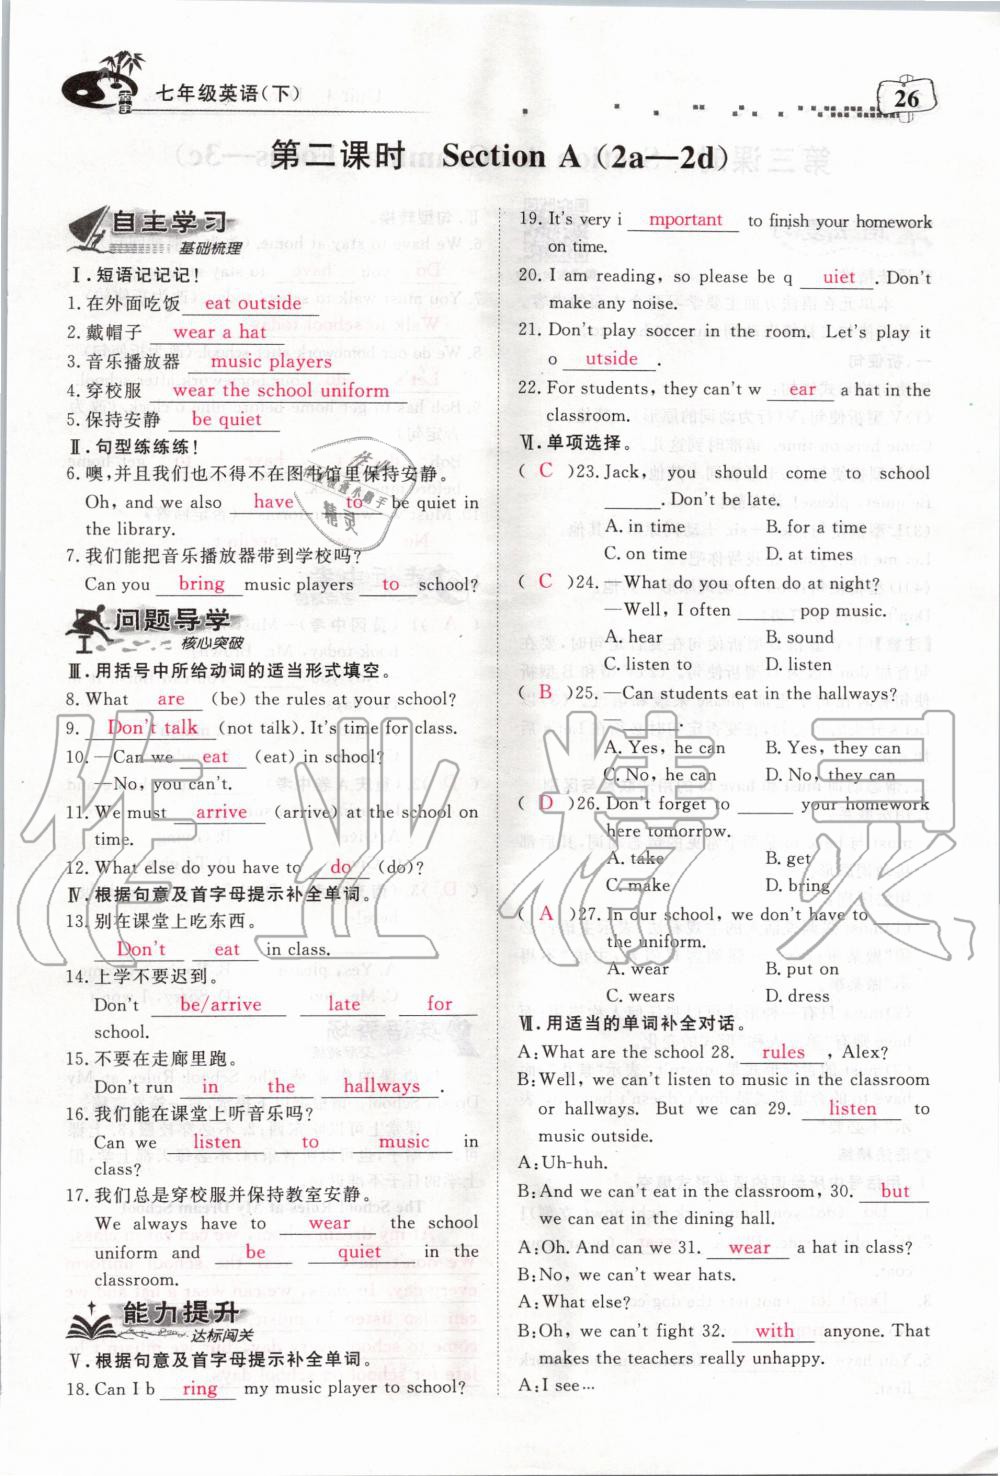 七年级英语(下)
26
第二课时 Section A (2a—2d)
自主学习
基础梳理
Ⅰ.短语记记记!
1.在外面吃饭 eat outside
2.戴帽子 wear a hat
3.音乐播放器 music players
4.穿校服 wear the school uniform
5.保持安静 be quiet
Ⅱ.句型练练练!
6.噢,并且我们也不得不在图书馆里保持安静。
Oh, and we also have to be quiet in
the library.
7.我们能把音乐播放器带到学校吗?
Can you bring music players to school?
问题导学
核心突破
Ⅲ.用括号中所给动词的适当形式填空。
8.What are (be) the rules at your school?
9. Don't talk (not talk). It's time for class.
10.—Can we eat (eat) in school?
—No, you can't.
11.We must arrive (arrive) at the school on
time.
12.What else do you have to do (do)?
Ⅳ.根据句意及首字母提示补全单词。
13.别在课堂上吃东西。
Don't eat in class.
14.上学不要迟到。
Don't be/arrive late for
school.
15.不要在走廊里跑。
Don't run in the hallways .
16.我们能在课堂上听音乐吗?
Can we listen to music in
class?
17.我们总是穿校服并保持教室安静。
We always have to wear the school
uniform and be quiet in the
classroom.
能力提升
达标闯关
Ⅴ.根据句意及首字母提示补全单词。
18.Can I b ring my music player to school?
19.It's very i mportant to finish your homework
on time.
20.I am reading, so please be q uiet . Don't
make any noise.
21.Don't play soccer in the room. Let's play it
o utside .
22.For students, they can't w ear a hat in the
classroom.
Ⅵ.单项选择。
( C )23.Jack, you should come to school
______. Don't be late.
A. in time B. for a time
C. on time D. at times
( C )24.—What do you often do at night?
—Well, I often ______ pop music.
A. hear B. sound
C. listen to D. listen
( B )25.—Can students eat in the hallways?
—______.
A. Yes, he can B. Yes, they can
C. No, he can D. No, they can
( D )26.Don't forget to ______ your homework
here tomorrow.
A. take B. get
C. make D. bring
( A )27.In our school, we don't have to ______
the uniform.
A. wear B. put on
C. wears D. dress
Ⅶ.用适当的单词补全对话。
A:What are the school 28. rules , Alex?
B:Well, we can't listen to music in the classroom
or hallways. But we can 29. listen to
music outside.
A:Uh-huh.
B:And we can't eat in the classroom, 30. but
we can eat in the dining hall.
A:Oh. And can we 31. wear a hat in class?
B:No, we can't wear hats.
A:What else?
B:Oh, we can't fight 32. with anyone. That
makes the teachers really unhappy.
A:I see…
作业精灵